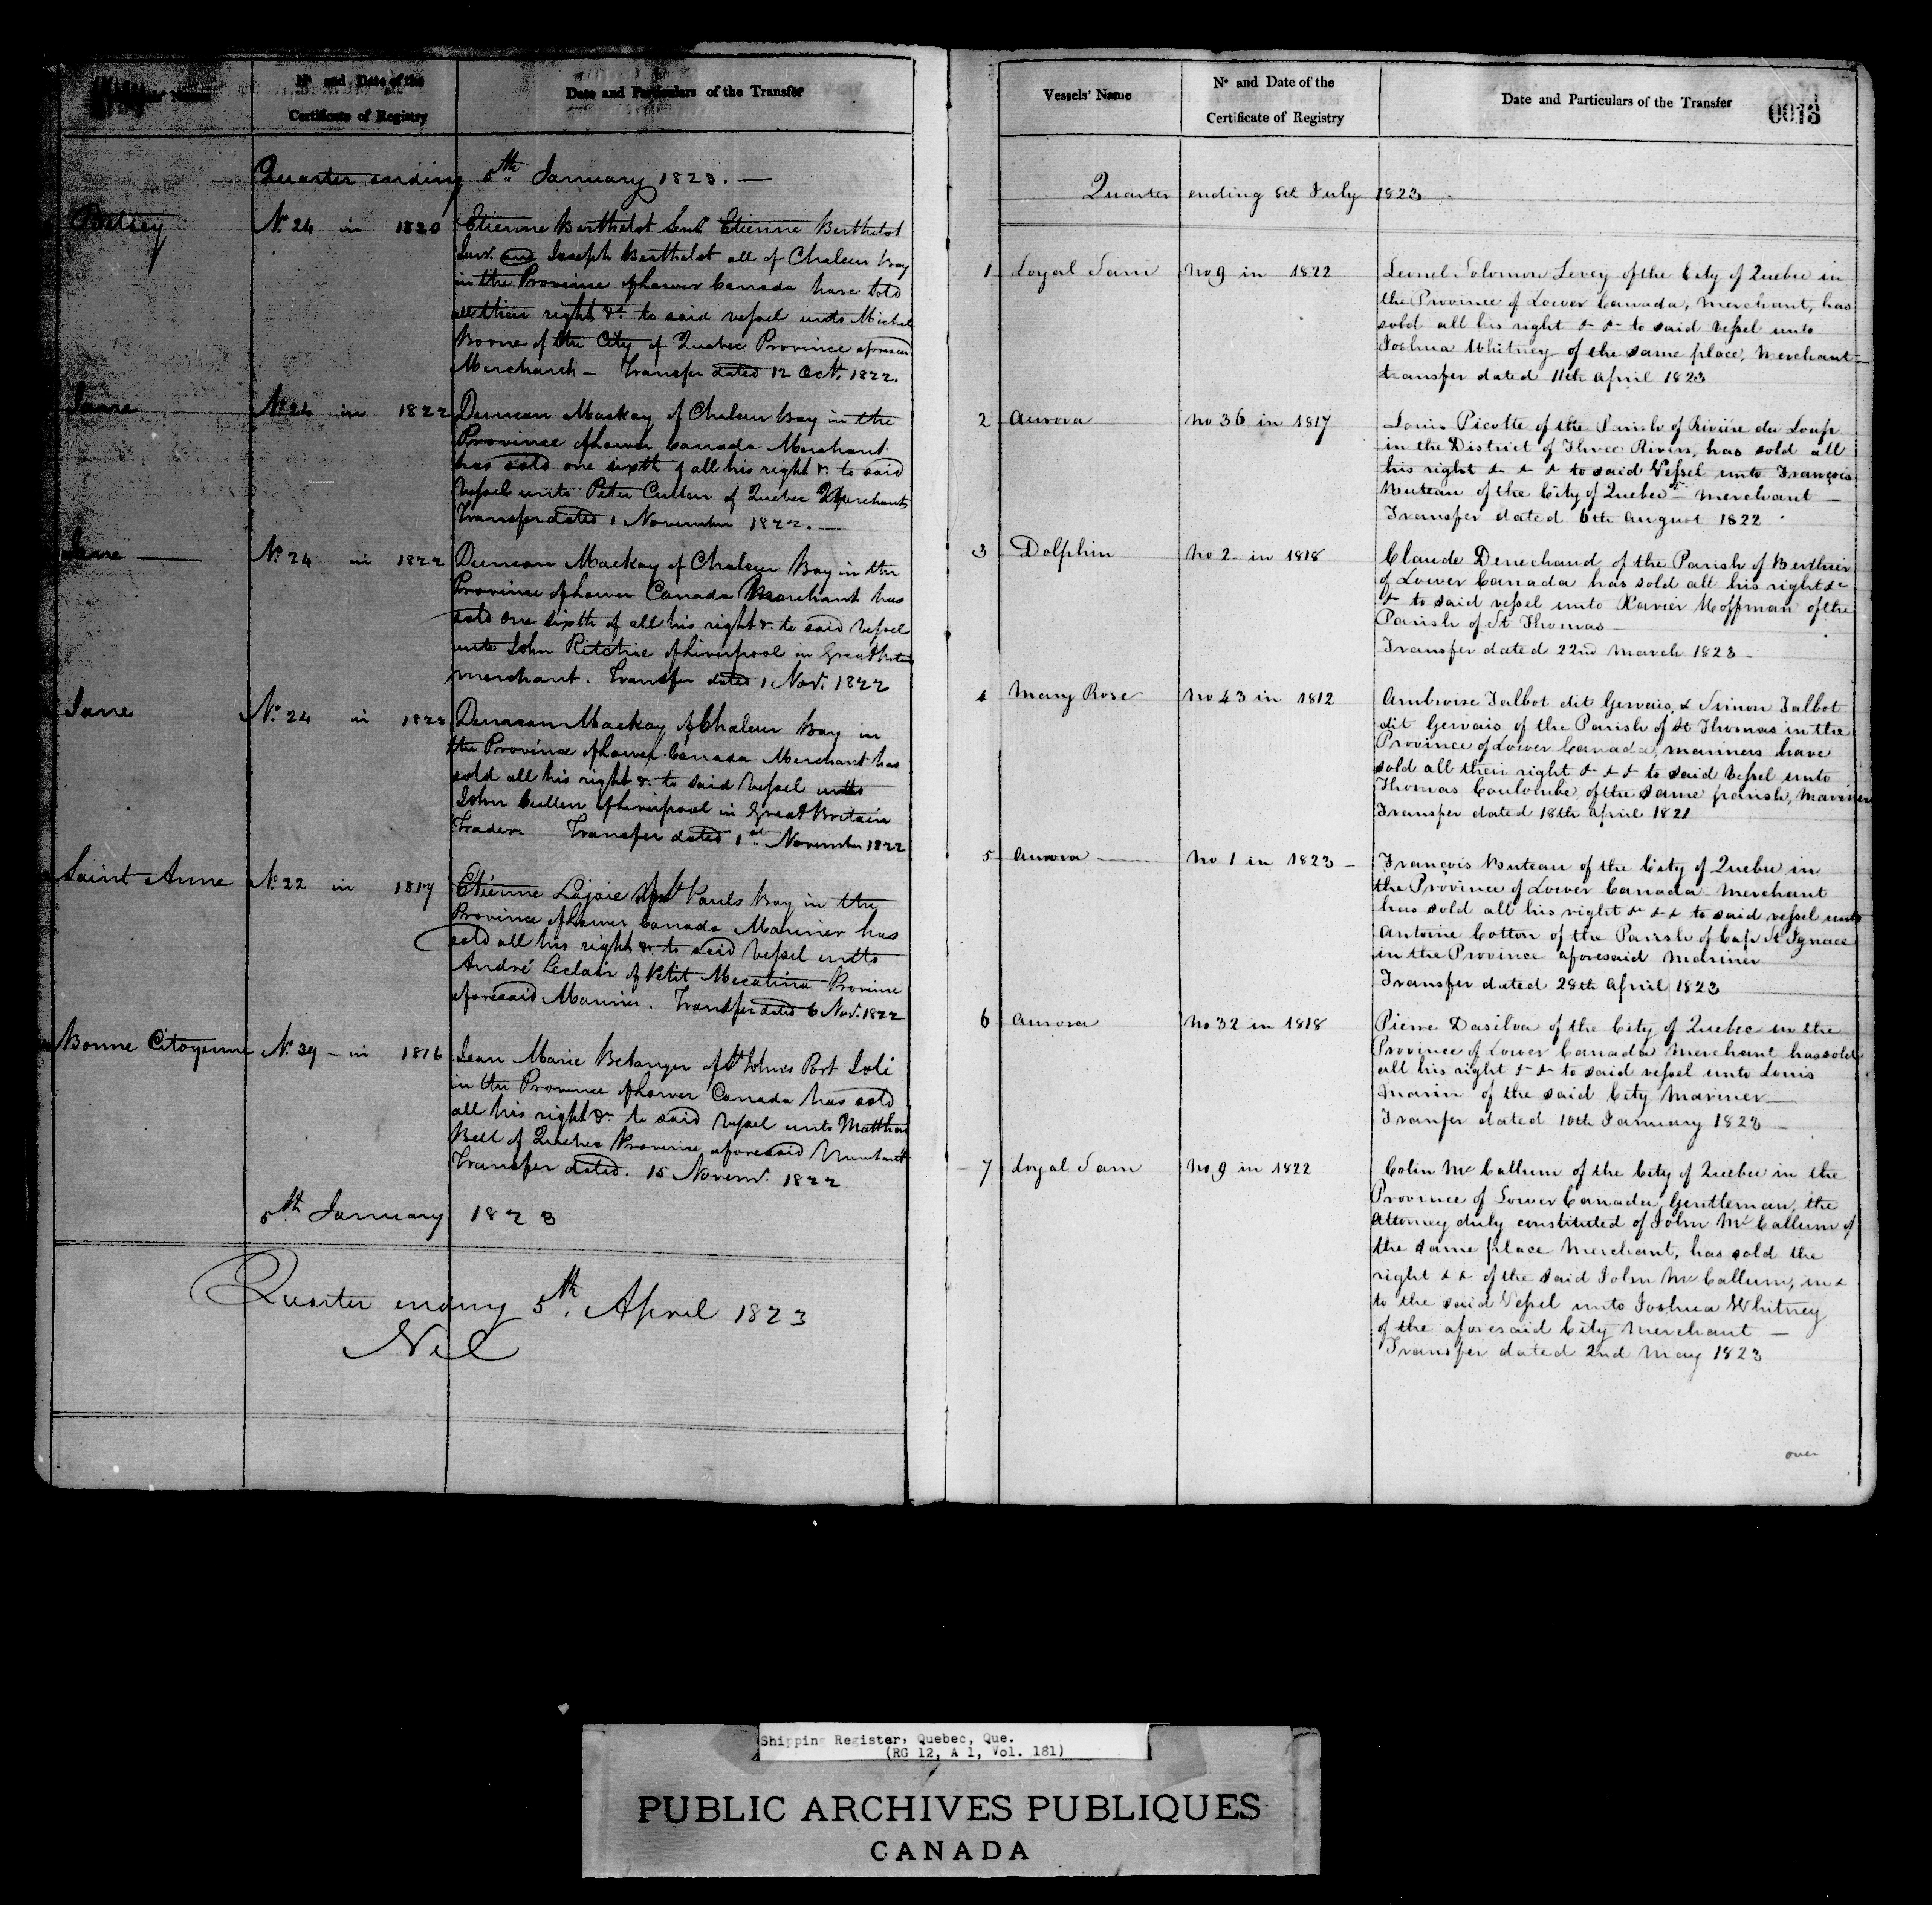 Vessels' Names
No and Date of the
Certificate of Registry
Date and Particulars of the Transfer
Quarter ending 5th January 1823. —
Betsey No. 24 in 1820 Etienne Berthelot Senr Etienne Berthelot
Junr. and Joseph Berthelot all of Chaleur Bay
in the Province of Lower Canada have sold
all their right &c. to said vessel unto Michel
Borne of the City of Quebec Province aforesaid
Merchant — Transfer dated 12 Oct. 1822.
Jane No. 24 in 1822 Duncan Mackay of Chaleur Bay in the
Province of Lower Canada Merchant
has sold one sixth of all his right &c. to said
Vessel unto Peter Cullen of Quebec Merchant
Transfer dated 1 November 1822. —
Jane — No. 24 in 1822 Duncan Mackay of Chaleur Bay in the
Province of Lower Canada Merchant has
sold one sixth of all his right &c. to said Vessel
unto John Ritchie of Liverpool in Great Britain
merchant. Transfer dated 1 Nov. 1822
Jane No. 24 in 1822 Duncan Mackay of Chaleur Bay in
the Province of Lower Canada Merchant has
sold all his right &c. to said Vessel unto
John Cullen of Liverpool in Great Britain
Trader. Transfer dated 1st November 1822
Saint Anne No. 22 in 1817 Etienne Lajoie of St Pauls Bay in the
Province of Lower Canada Mariner has
sold all his right &c. to said Vessel unto
André Leclair of Petit Mecatina Province
aforesaid Mariner. Transfer dated 6 Nov. 1822
Bonne Citoyenne No. 39 — in 1816 Jean Marie Belanger of St Johns Port Joli
in the Province of Lower Canada has sold
all his right &c. to said Vessel unto Matthew
Bell of Quebec Province aforesaid Merchant
Transfer dated. 15 Novemr. 1822
5th January 1823
Quarter ending 5th. April 1823
Nil
Vessels' Name
No and Date of the
Certificate of Registry
Date and Particulars of the Transfer
0013
Quarter ending 5th July 1823
1 Loyal Sam no 9 in 1822 Lionel Solomon Levey of the City of Quebec in
the Province of Lower Canada, Merchant, has
sold all his right & &c to said Vessel unto
Joshua Whitney of the same place, Merchant —
transfer dated 11th April 1823
2 Aurora no 36 in 1817 Louis Picotte of the Parish of Rivière du Loup
in the District of Three Rivers, has sold all
his right & & & to said Vessel unto François
Buteau of the City of Quebec — Merchant —
Transfer dated 6th August 1822
3 Dolphin no 2 in 1818 Claude Denechaud of the Parish of Berthier
of Lower Canada has sold all his right &c
& to said vessel unto Xavier Hoffman of the
Parish of St Thomas —
Transfer dated 22nd March 1823 —
4 Mary Rose no 43 in 1812 Ambroise Talbot dit Gervais, & Simon Talbot
dit Gervais of the Parish of St Thomas in the
Province of Lower Canada, mariners have
sold all their right & & & to said Vessel unto
Thomas Coulombe of the same parish, Mariner
Transfer dated 18th April 1821
5 Aurora — no 1 in 1823 — François Buteau of the City of Quebec in
the Province of Lower Canada Merchant
has sold all his right & & & to said vessel unto
Antoine Cotton of the Parish of Cap St Ignace
in the Province aforesaid Mariner
Transfer dated 28th April 1823
6 Aurora no 32 in 1818 Pierre Dasilva of the City of Quebec in the
Province of Lower Canada Merchant has sold
all his right & & to said vessel unto Louis
Marin of the said City Mariner —
Tranfer dated 10th January 1823 —
7 Loyal Sam no 9 in 1822 Colin McCallum of the City of Quebec in the
Province of Lower Canada, Gentleman, the
Attorney duly constituted of John McCallum of
the same place Merchant, has sold the
right & & of the said John McCallum, in &
to the said Vessel unto Joshua Whitney
of the aforesaid City Merchant —
Transfer dated 2nd May 1823
over
Shipping Register, Quebec, Que.
(RG 12, A 1, Vol. 181)
PUBLIC ARCHIVES PUBLIQUES
CANADA